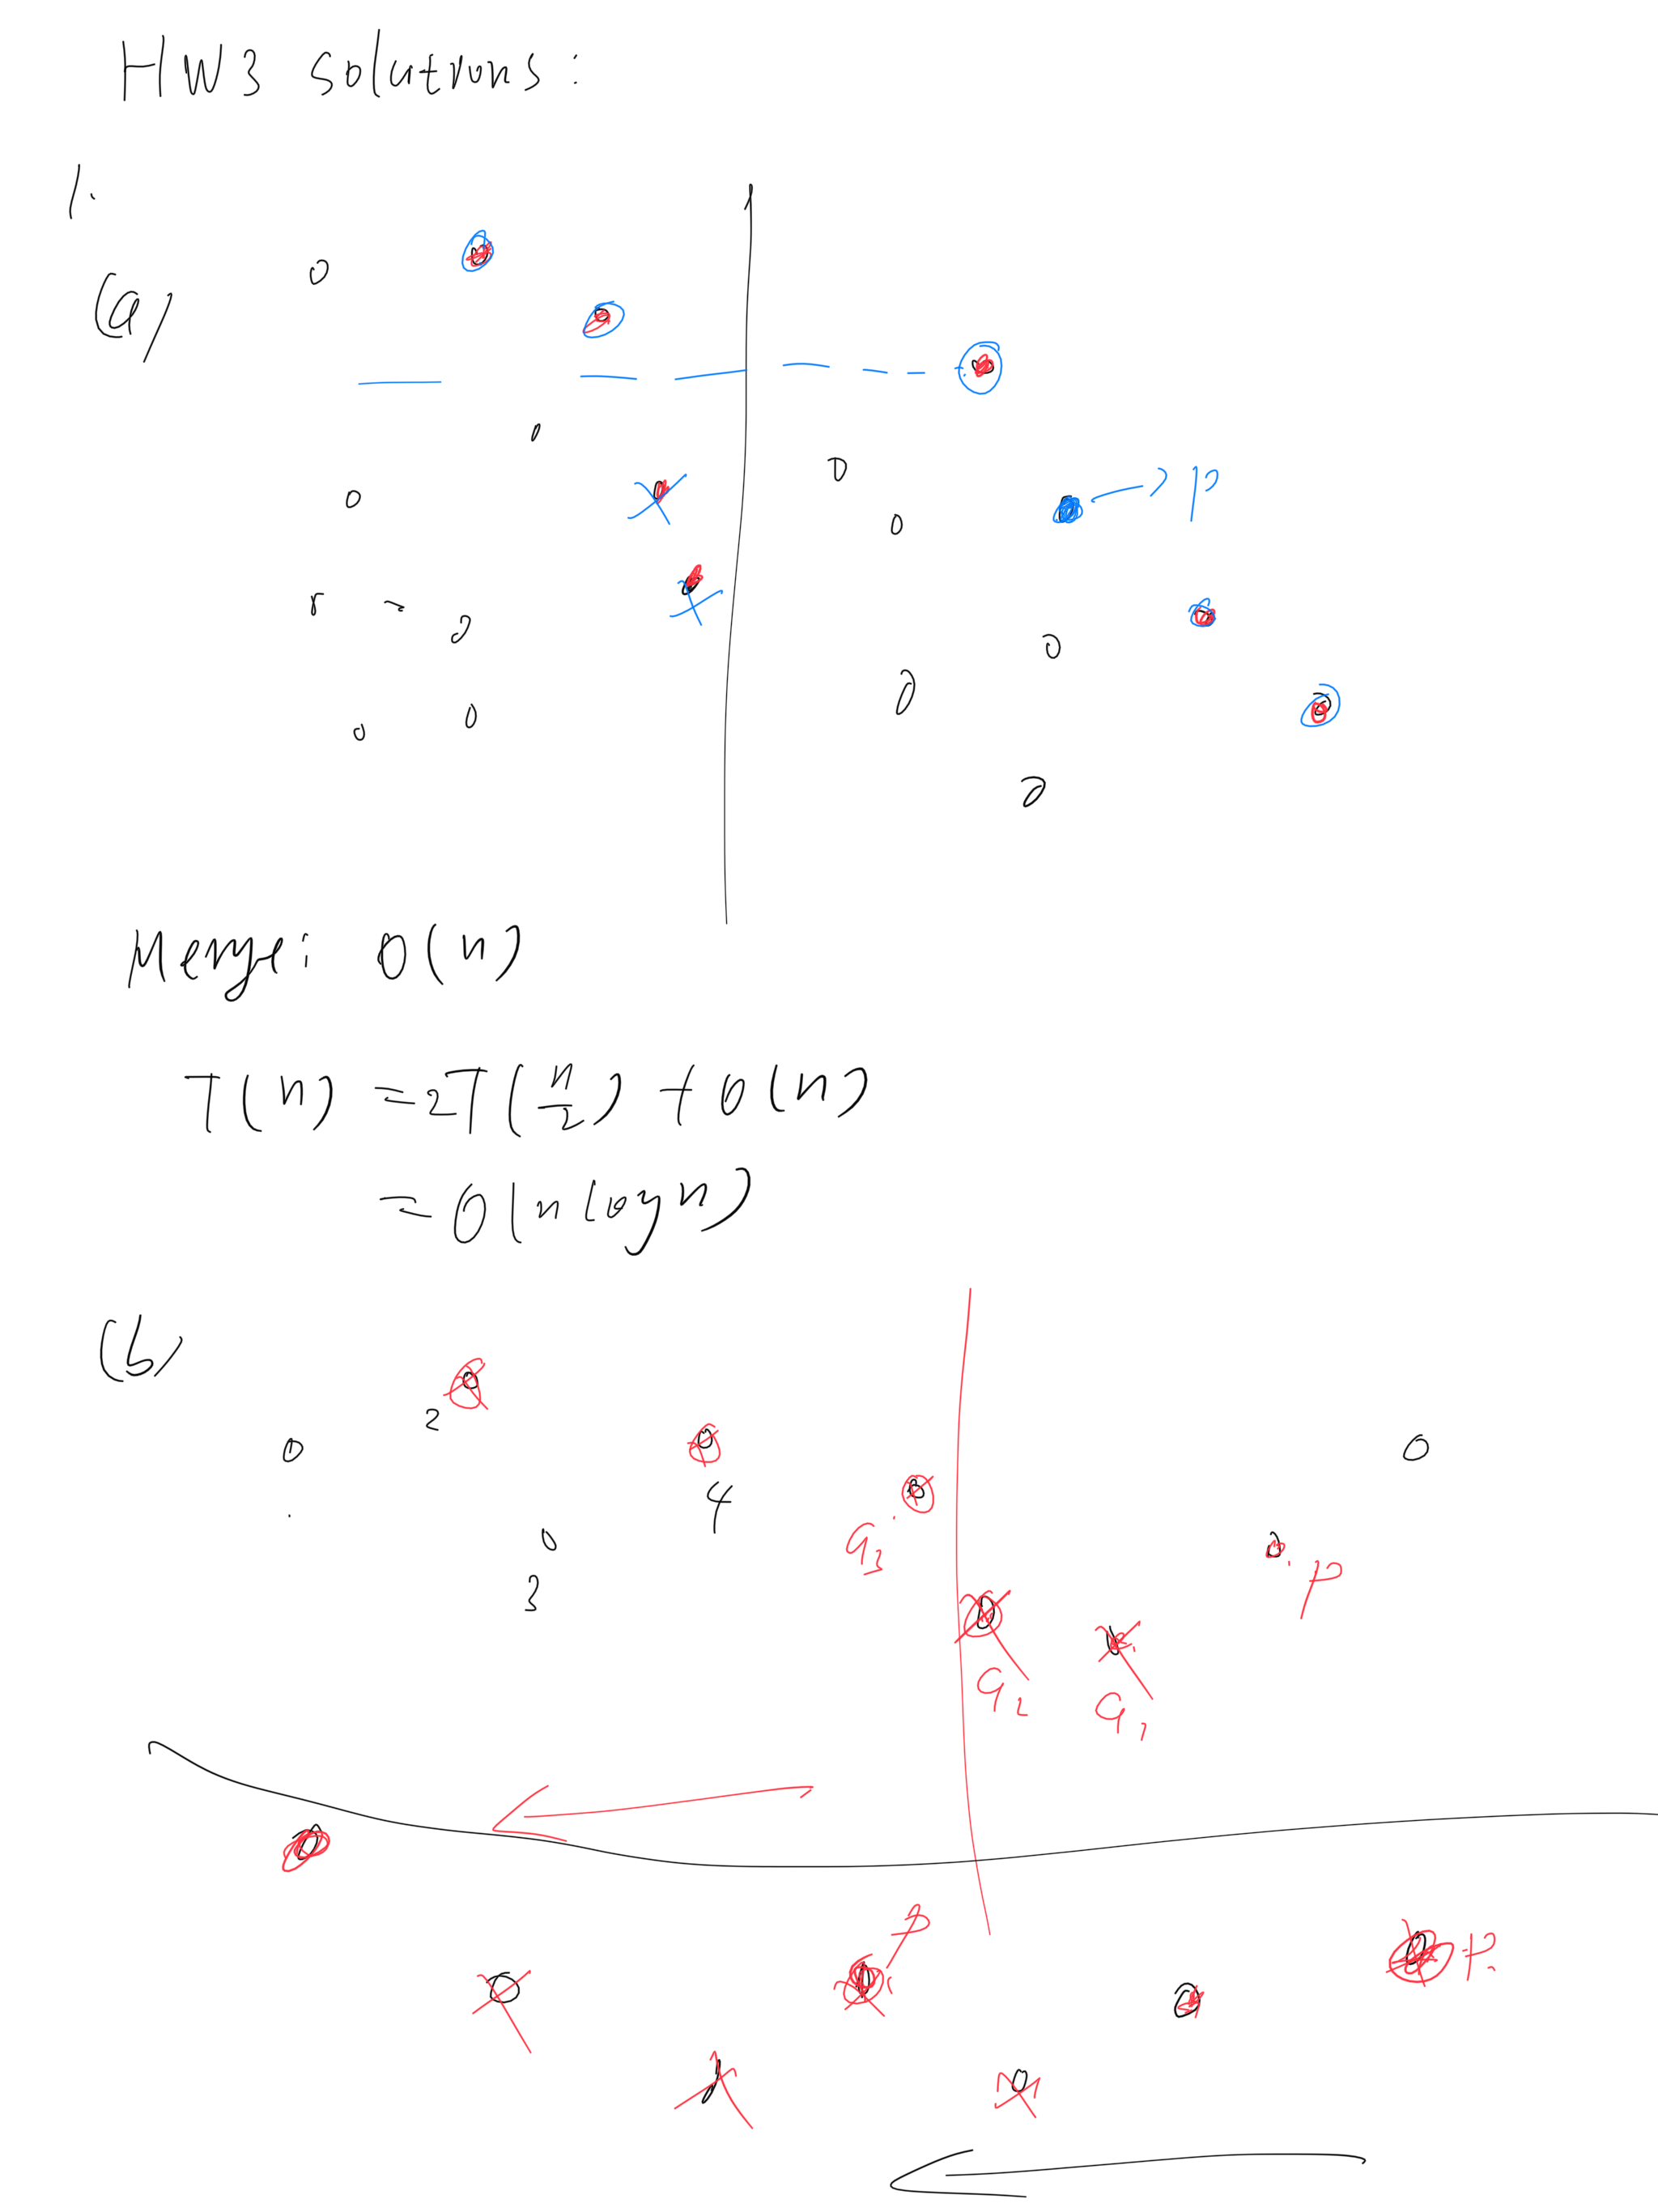 HW3 solutions:
1.
(a)
p
Merge: O(n)
T(n) = 2T(n/2) + O(n)
= O(n log n)
(b)
2
4
3
q3
p
q2
q1
p
p